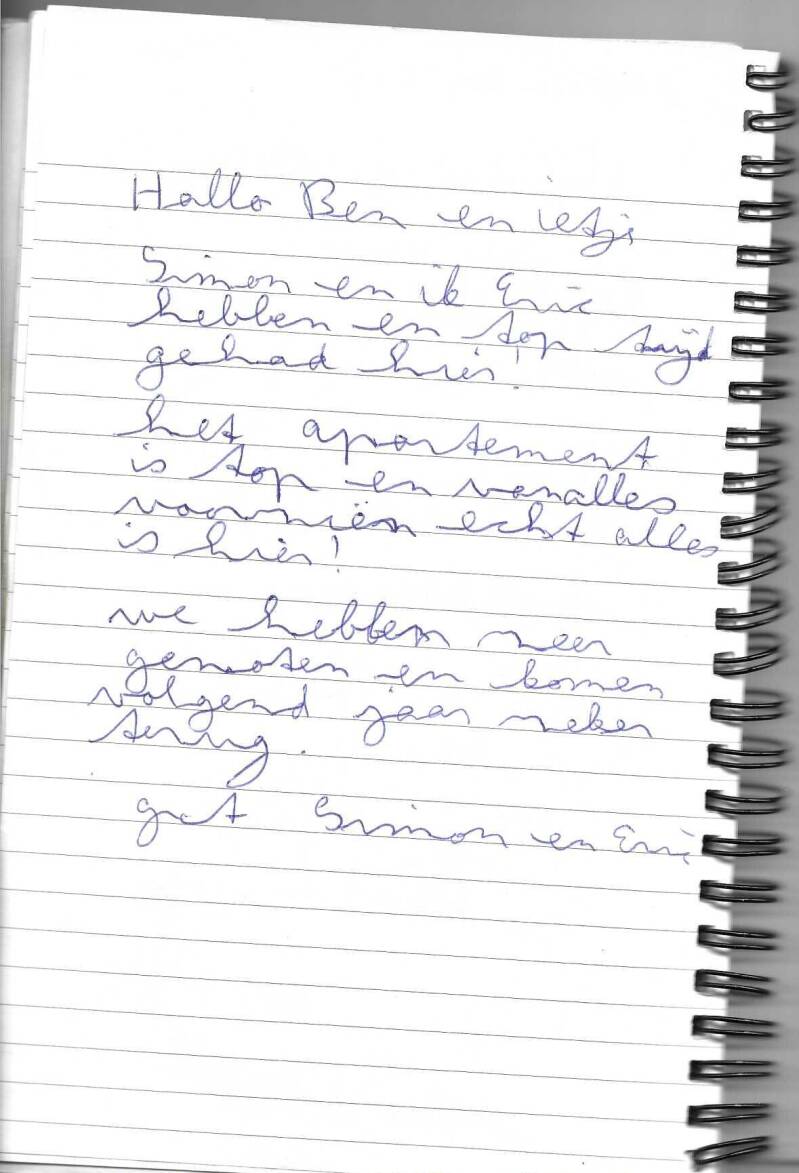 Hallo Ben en ietje
Simon en ik Eric
hebben en top tijd
gehad hier!
het apartement
is top en vanalles
voorzien echt alles
is hier!
we hebben zeer
genoten en komen
volgend jaar zeker
terug.
grt Simon en Eric